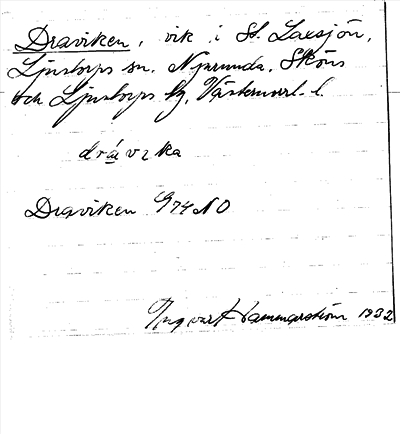 Draviken, vik i St. Laxsjön,
Ljustorps sn. Njurunda, Sköns
och Ljustorps tg, Västernorrl. l.
drávıka
Draviken G74NO
Ingvar Hammarström 1932